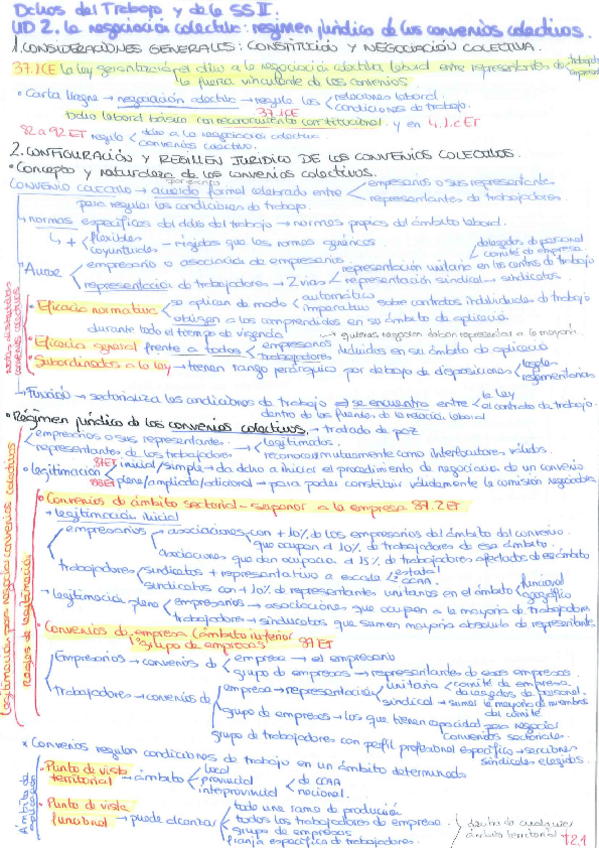 Dchos del Trabajo y de la SS II.
UD 2. la negociación colectiva: régimen jurídico de los convenios colectivos.
1. CONSIDERACIONES GENERALES: CONSTITUCIÓN Y NEGOCIACIÓN COLECTIVA.
37.1 CE la ley garantizará el dcho a la negociación colectiva laboral entre representantes de trabajadores empresarios
la fuerza vinculante de los convenios.
• Carta Magna → negociación colectiva → regula las relaciones laboral.
condiciones de trabajo.
Dcho laboral básico con reconocimiento constitucional 37.1CE y en 4.1.c ET
82 a 92 ET regula dcho a la negociación colectiva
convenios colectivos.
2. CONFIGURACIÓN Y RÉGIMEN JURÍDICO DE LOS CONVENIOS COLECTIVOS.
• Concepto y naturaleza de los convenios colectivos.
CONVENIO COLECTIVO → acuerdo por escrito formal celebrado entre empresarios o sus representantes
representantes de trabajadores.
para regular las condiciones de trabajo.
→ normas específicas del dcho del trabajo → normas propias del ámbito laboral.
↳ + flexibles
coyunturales – rígidas que las normas genéricas
delegados de personal
comité de empresa
Nace empresario o asociación de empresarios
representación unitaria en los centros de trabajo
representación de trabajadores → 2 vías representación sindical → sindicatos
notas distintivas convenios colectivos
• Eficacia normativa se aplican de modo automático
imperativo sobre contratos individuales de trabajo
obligan a los comprendidos en su ámbito de aplicación
durante todo el tiempo de vigencia → quienes negocian deben representar a la mayoría.
• Eficacia general frente a todos empresarios
trabajadores incluidos en su ámbito de aplicación
• Subordinados a la ley → tienen rango jerárquico por debajo de disposiciones legales
reglamentarias
→ Función → sectorializa las condiciones de trabajo → se encuentra entre la ley
el contrato de trabajo.
dentro de las fuentes de la relación laboral
• Régimen jurídico de los convenios colectivos. → tratado de paz
empresarios o sus representantes. legitimados.
representantes de los trabajadores reconocerse mutuamente como interlocutores válidos.
Legitimación para negociar convenios colectivos
• legitimación inicial/simple → da dcho a iniciar el procedimiento de negociación de un convenio
plena/ampliada/adicional → para poder constituir válidamente la comisión negociadora
Reglas de legitimación
• Convenios de ámbito sectorial – superior a la empresa 87.2 ET
→ legitimación inicial
empresarios asociaciones con + 10% de los empresarios del ámbito del convenio.
que ocupan el 10% de trabajadores de ese ámbito.
asociaciones que den ocupación al 15% de trabajadores afectados de ese ámbito
trabajadores sindicatos + representativos a escala estatal
CCAA.
sindicatos con + 10% de representantes unitarios en el ámbito funcional
geográfico
→ legitimación plena empresarios → asociaciones que ocupen a la mayoría de trabajadores
trabajadores → sindicatos que sumen mayoría absoluta de representantes.
• Convenios de empresa (ámbito inferior
grupo de empresas) 87 ET
Empresarios → convenios de empresa → el empresario
grupo de empresas → representantes de esas empresas.
Trabajadores → convenios de empresa → representación unitaria comité de empresa.
delegados de personal.
sindical → sumen la mayoría de miembros del comité
grupo de empresas → los que tienen capacidad para negociar convenios sectoriales.
grupo de trabajadores con perfil profesional específico → secciones sindicales elegidas.
* Convenios regulan condiciones de trabajo en un ámbito determinado
Ámbito de aplicación
• Punto de vista territorial → ámbito local
provincial
interprovincial
de CCAA
nacional.
• Punto de vista funcional → puede alcanzar toda una rama de producción
todos los trabajadores de empresa.
grupo de empresas
franja específica de trabajadores.
dentro de cualquier ámbito territorial
T2.1